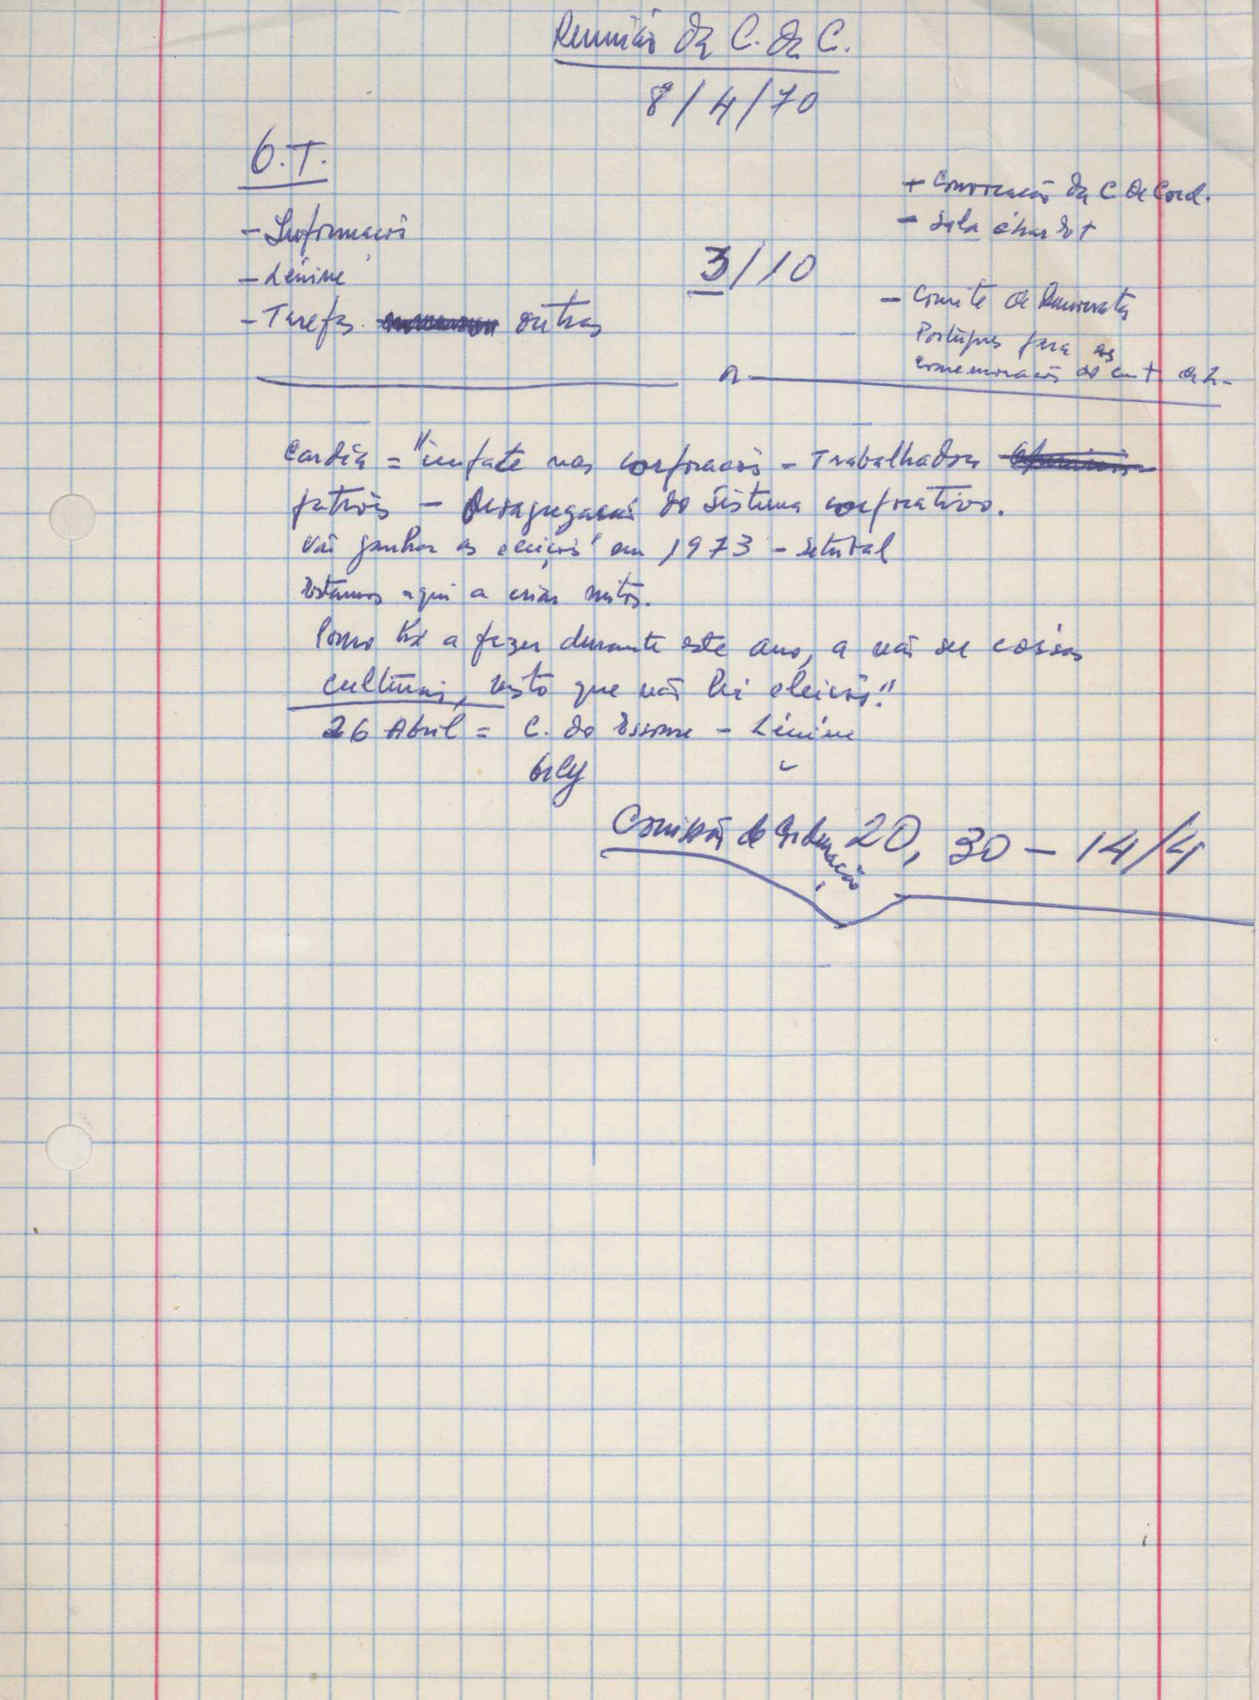 Reunião da C. de C.
8/4/70
O.T.
- Informação
- Lénine
- Tarefas outras
3/10
+ Convocação da C. de Cord.
- Sala
- Comité de Democratas
Portugues para as
comemorações do de L.
Cardia = "empate nas corporações - Trabalhadores
patrões - Desagregação do Sistema corporativo.
Vão ganhar as eleições" em 1973 - Setubal
Estamos aqui a criar mitos.
Pouco há a fazer durante este ano, a não ser coisas
culturais, visto que não há eleições."
26 Abril = C. do Essone - Lénine
Gily "
Comissão de Cordenação 20,30 - 14/4